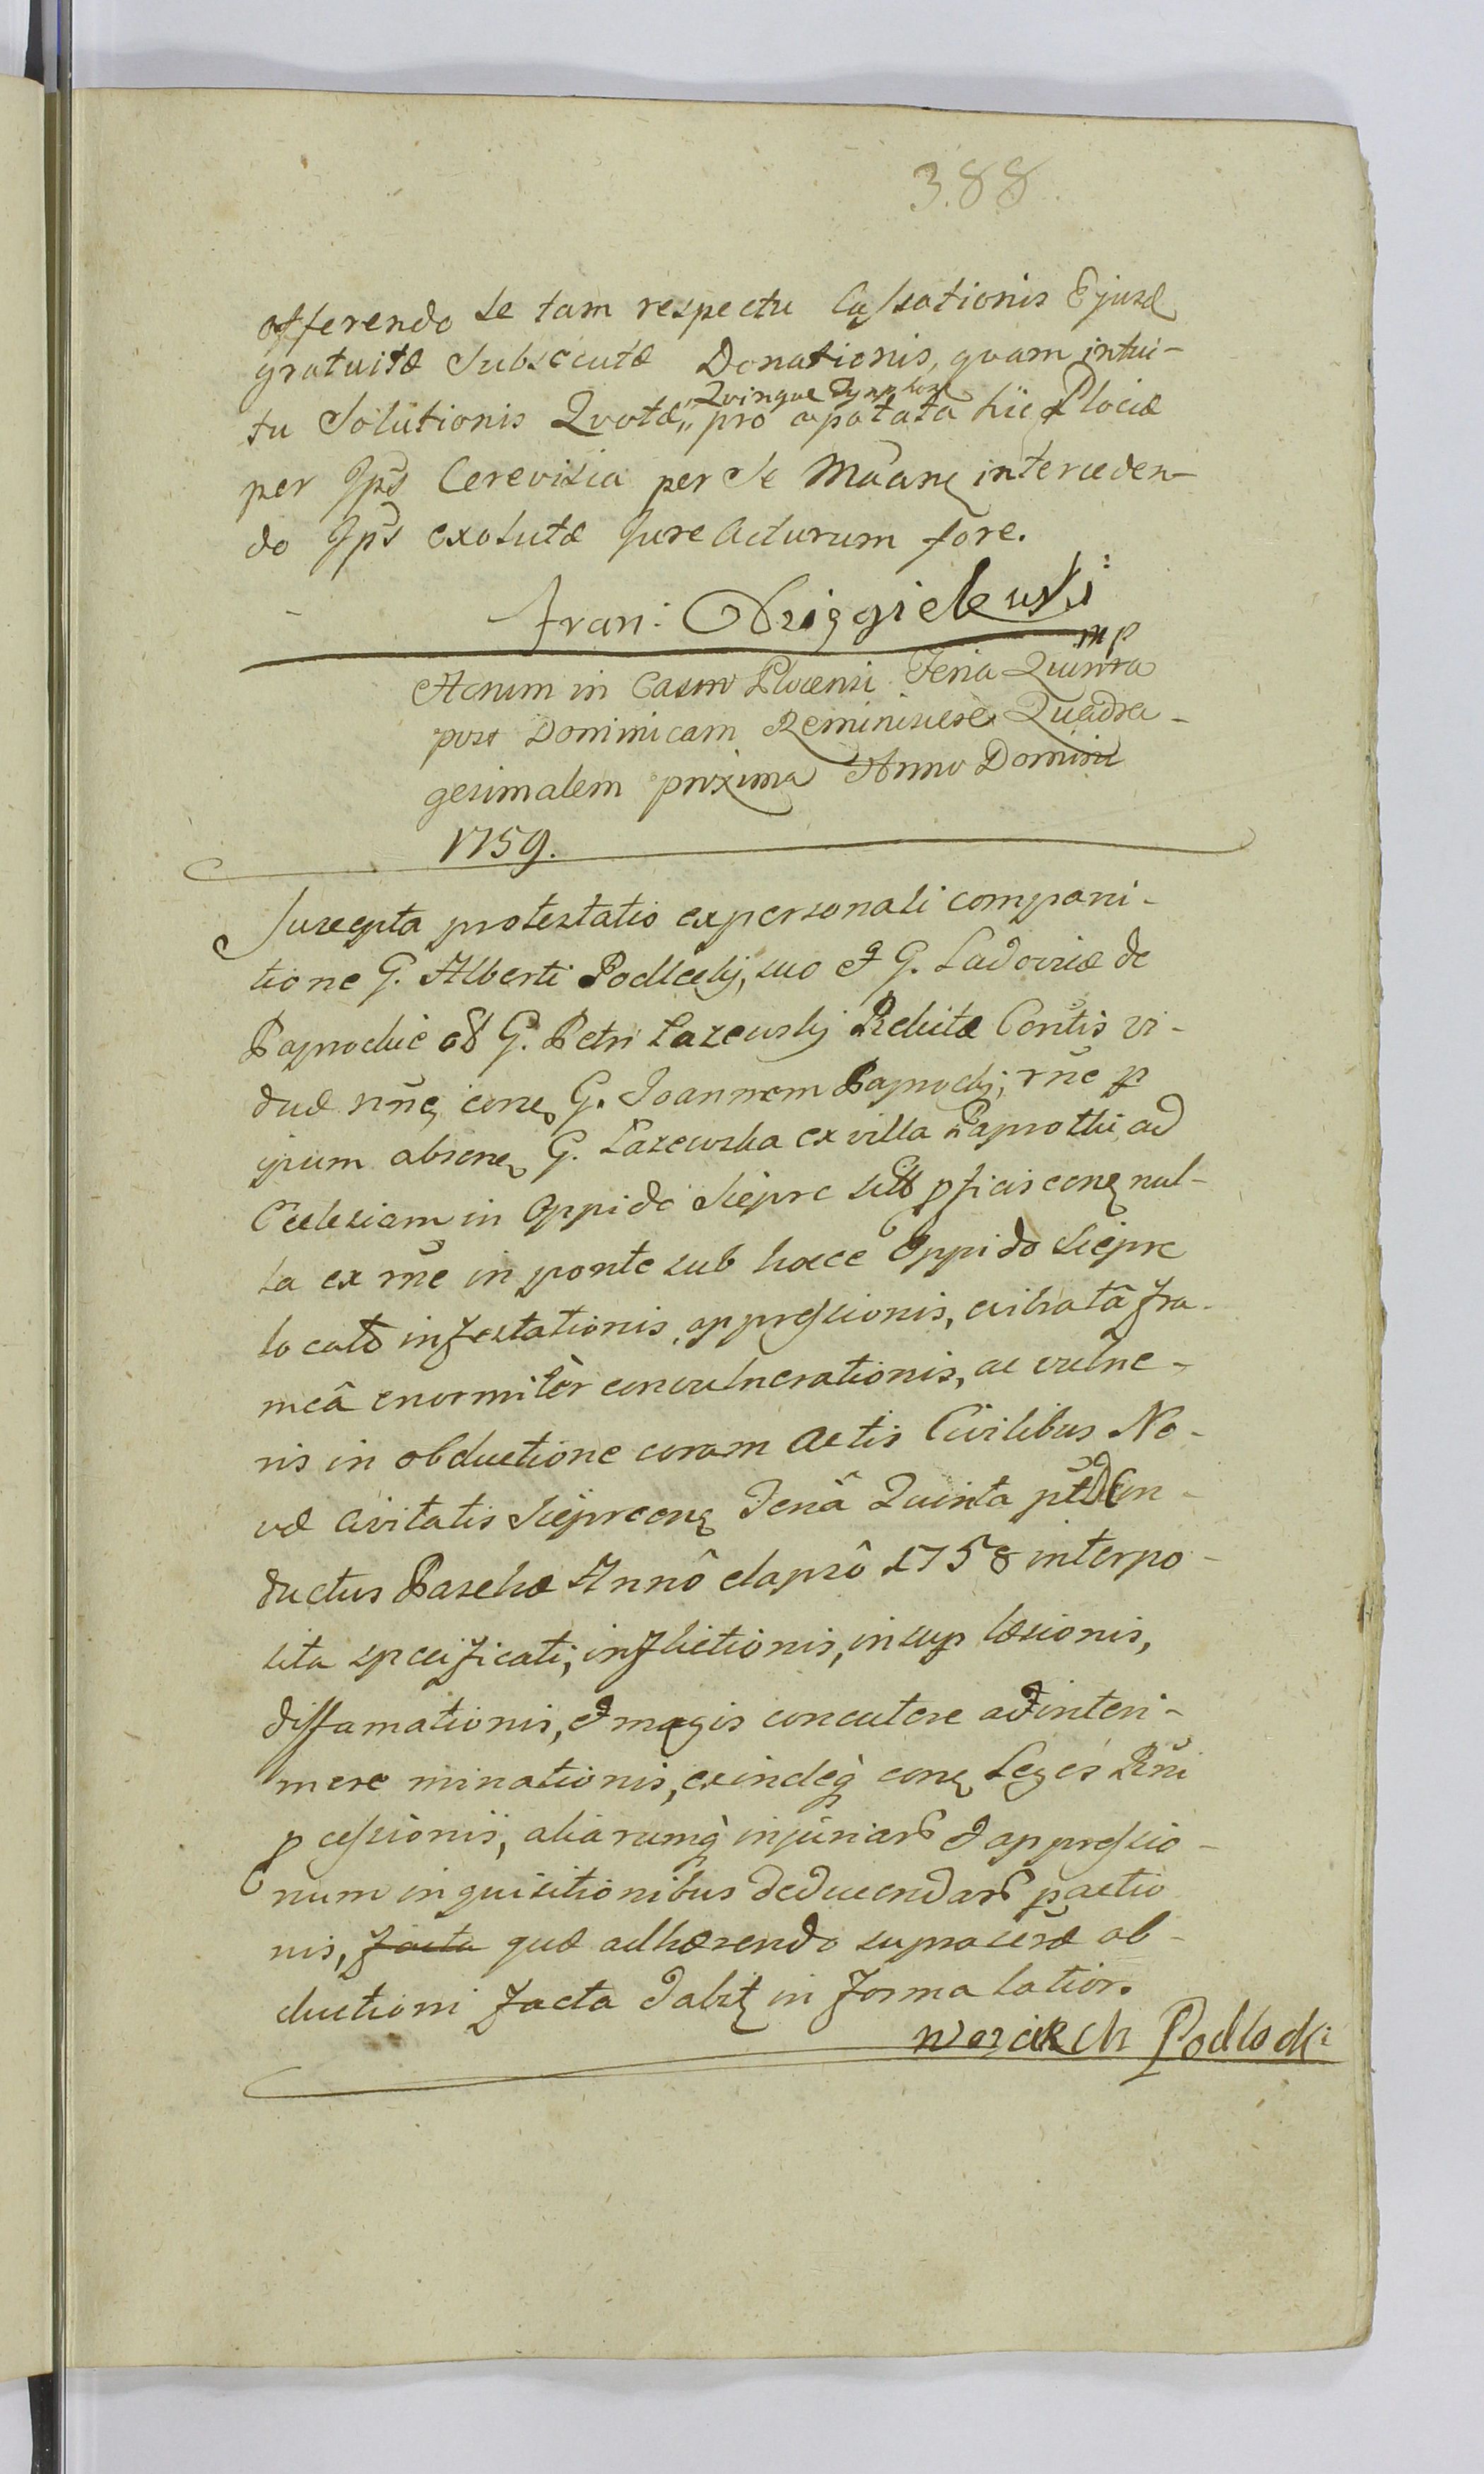 388
offerendo se tam respectu Cassationis Ejusd
gratuitæ Subsecutæ Donationis, quam intui-
tu Solutionis Qvotæ,, Qvinque pro apotata hic Plociæ
per Ips Cerevisia per Se interceden-
do Ips exolutæ Jure Acturum fore.
Fran:
mp
Actum in Castro Plocensi Feria Quinta
post Dominicam Reminiscere Quadra-
gesimalem proxima Anno Domini
1759.
Suscepta protestatio ex personali compari-
tione G. Alberti Podlecky, suo et G. Ladoviæ de
Paprockie olĩ G. Petri Lazewsky Relictæ Contis vi-
duæ nne, cone G. Joannem Paprocky, rne
ipsum absene G. Lazewska ex villa Paprotki ad
Ecclesiam in Oppido Siepre sitã pficiscene nul-
la ex rne in ponte sub hocce Oppido Siepre
locato infestationis, oppressionis, evibratâ fra-
meâ enormiter convulnerationis, ac vulne-
ris in obductione coram Actis Civilibus No-
væ Civitatis Sieprcens Feriâ Quinta Con-
ductus Paschæ Annô elapsô 1758 interpo-
sita specificati, inflictionis, insup læsionis,
diffamationis, et magis concutere ad interi-
mere minationis, exindeq cone Leges Rni
pcessionis, aliarumq injuriarũ et oppressio-
num inquisitionibus deducendarũ pactio
nis, facta quæ adhærendo suprascræ ob-
ductioni facta dabit in forma latior.
Podlecki